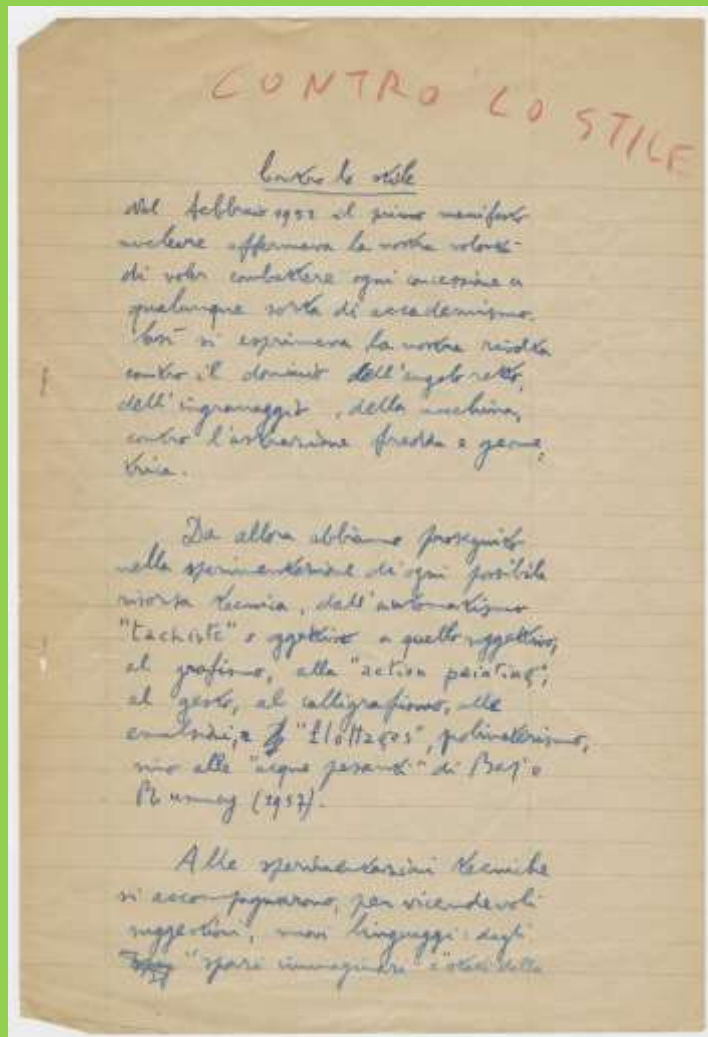 CONTRO LO STILE
Contro lo stile
Nel febbraio 1952 il primo manifesto
nucleare affermava la nostra volontà
di voler combattere ogni concessione a
qualunque sorta di accademismo.
Così si esprimeva la nostra rivolta
contro il dominio dell'angolo retto,
dell'ingranaggio, della macchina,
contro l'astrazione fredda e geome
trica.
Da allora abbiamo proseguito
nella sperimentazione di ogni possibile
risorsa tecnica, dall'automatismo
"tachiste" oggettivo a quello soggettivo,
al grafismo, alla "action painting",
al gesto, al calligrafismo, alle
emulsioni, a "flottages", polimaterismo,
sino alle "acque pesanti" di Baj e
(1957).
Alle sperimentazioni tecniche
si accompagnarono, per vicendevoli
suggestioni, nuovi linguaggi: dagli
"spazi immaginari" "stati della